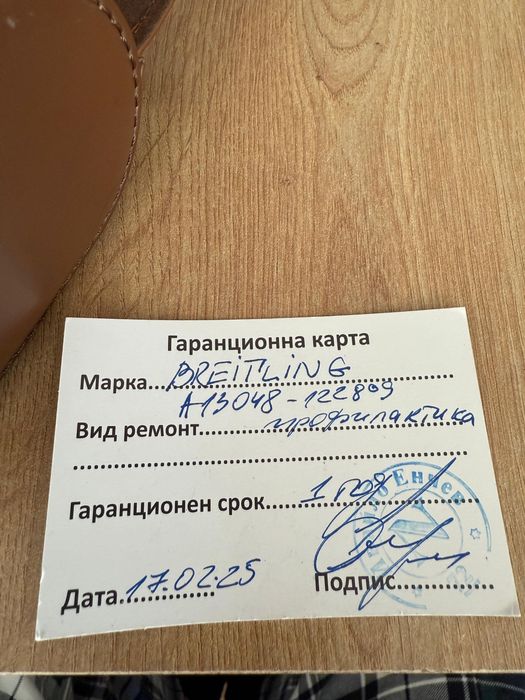 Гаранционна карта
Марка...BREITLING
A13048-122809
Вид ремонт...профилактика
Гаранционен срок...1 год
Енчев
Дата 17.02.25 Подпис